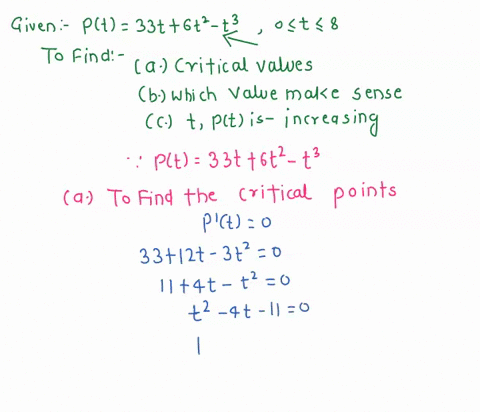 Given:- P(t) = 33t+6t²-t³, 0≤t≤8
To Find:-
(a.) Critical values
(b.) Which value make sense
(c.) t, P(t) is- increasing
∵ P(t) = 33t+6t²-t³
(a.) To Find the critical points
P'(t) = 0
33+12t-3t²=0
11+4t-t²=0
t²-4t-11=0